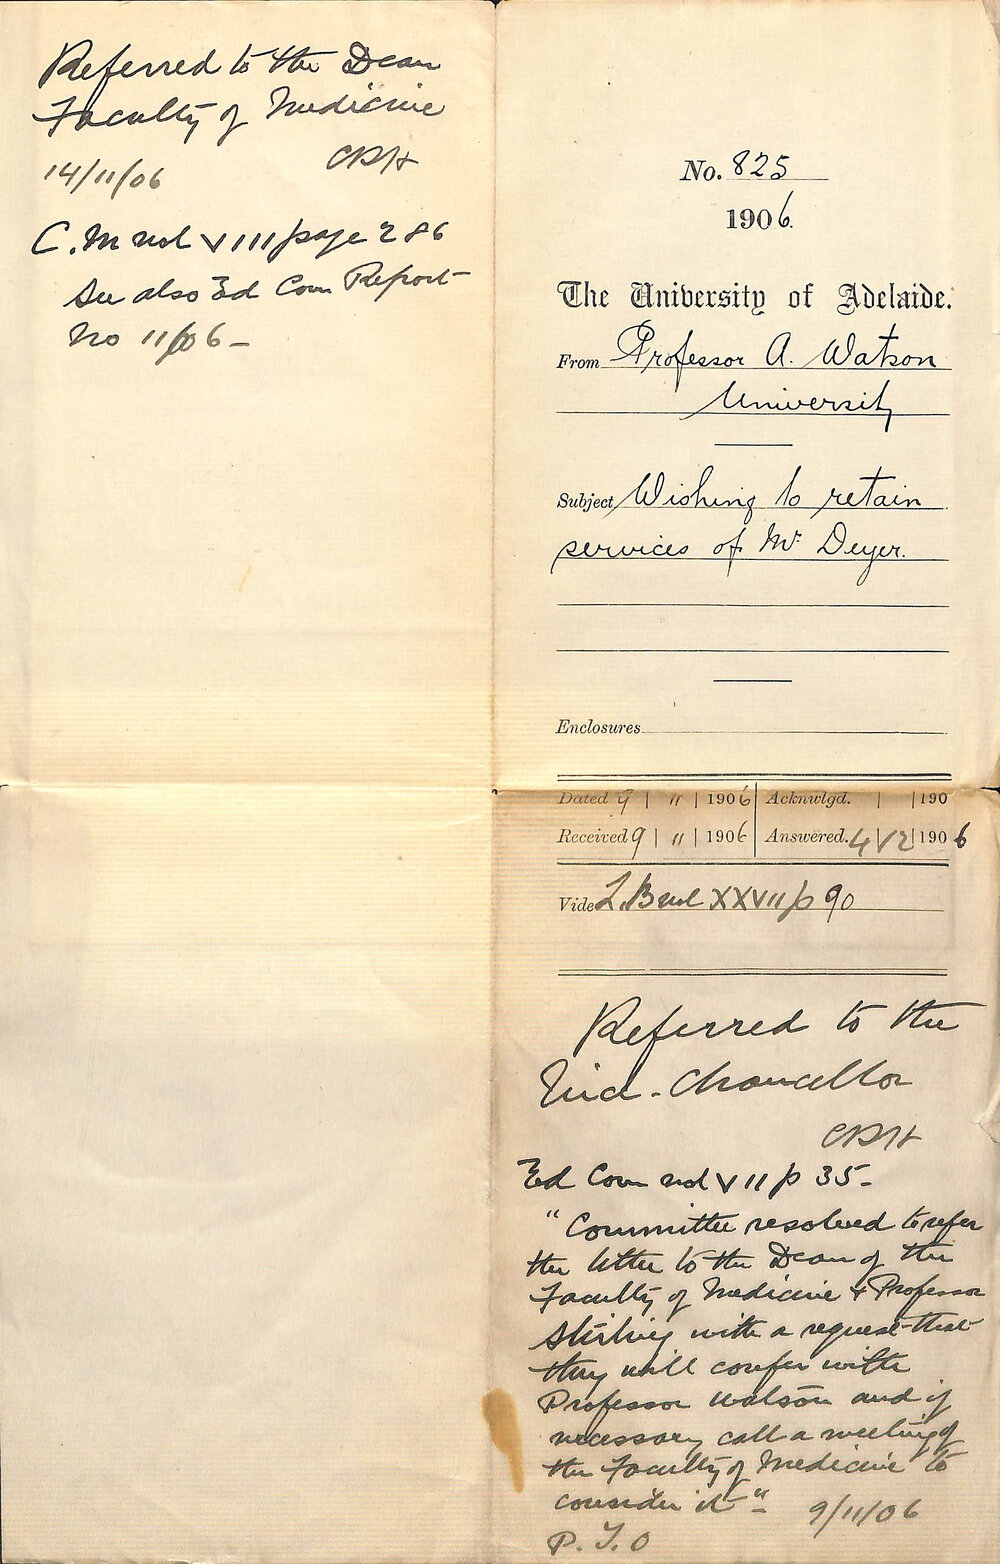 Referred to the Dean
Faculty of Medicine
CRH
14/11/06
C.M vol VIII page 286
See also Ed Com Report
No 11/06 -
No. 825
1906.
The University of Adelaide.
From Professor A. Watson
University
Subject Wishing to retain
services of Mr Deyer.
Enclosures
Dated 9 | 11 | 1906 Acknwlgd. | | 190
Received 9 | 11 | 1906 Answered. 4 | 12 | 1906
Vide L.B vol XXVII p 90
Referred to the
Vice-Chancellor
CRH
Ed Com vol VII p 35 -
"Committee resolved to refer
the letter to the Dean of the
Faculty of Medicine & Professor
Stirling with a request that
they will confer with
Professor Watson and if
necessary call a meeting of
the Faculty of Medicine to
consider it"
9/11/06
P.T.O